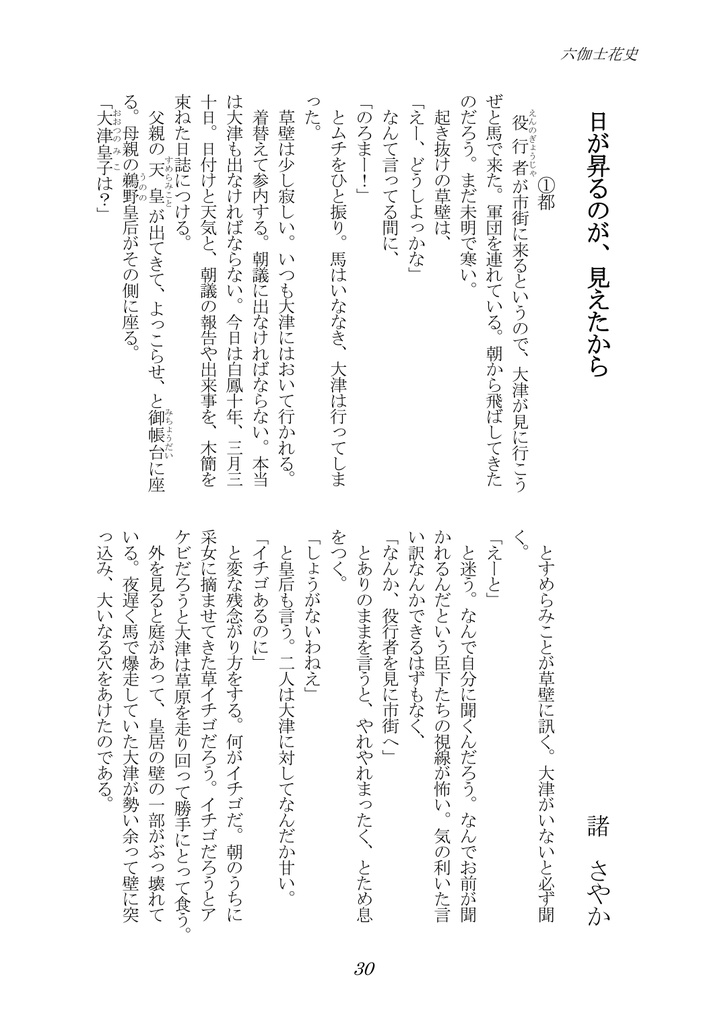 六伽士花史
日が昇るのが、見えたから
諸　さやか
①都
役行者が市街に来るというので、大津が見に行こう
えんのぎょうじゃ
ぜと馬で来た。軍団を連れている。朝から飛ばしてきた
のだろう。まだ未明で寒い。
起き抜けの草壁は、
「えー、どうしよっかな」
なんて言ってる間に、
「のろまー！」
とムチをひと振り。馬はいななき、大津は行ってしま
った。
草壁は少し寂しい。いつも大津にはおいて行かれる。
着替えて参内する。朝議に出なければならない。本当
は大津も出なければならない。今日は白鳳十年、三月三
十日。日付けと天気と、朝議の報告や出来事を、木簡を
束ねた日誌につける。
父親の天皇が出てきて、よっこらせ、と御帳台に座
すめらみこと
みちょうだい
る。母親の鵜野皇后がその側に座る。
うのの
「大津皇子は？」
おおつのみこ
とすめらみことが草壁に訊く。大津がいないと必ず聞
く。
「えーと」
と迷う。なんで自分に聞くんだろう。なんでお前が聞
かれるんだという臣下たちの視線が怖い。気の利いた言
い訳なんかできるはずもなく、
「なんか、役行者を見に市街へ」
とありのままを言うと、やれやれまったく、とため息
をつく。
「しょうがないわねえ」
と皇后も言う。二人は大津に対してなんだか甘い。
「イチゴあるのに」
と変な残念がり方をする。何がイチゴだ。朝のうちに
采女に摘ませてきた草イチゴだろう。イチゴだろうとア
ケビだろうと大津は草原を走り回って勝手にとって食う。
外を見ると庭があって、皇居の壁の一部がぶっ壊れて
いる。夜遅く馬で爆走していた大津が勢い余って壁に突
っ込み、大いなる穴をあけたのである。
30